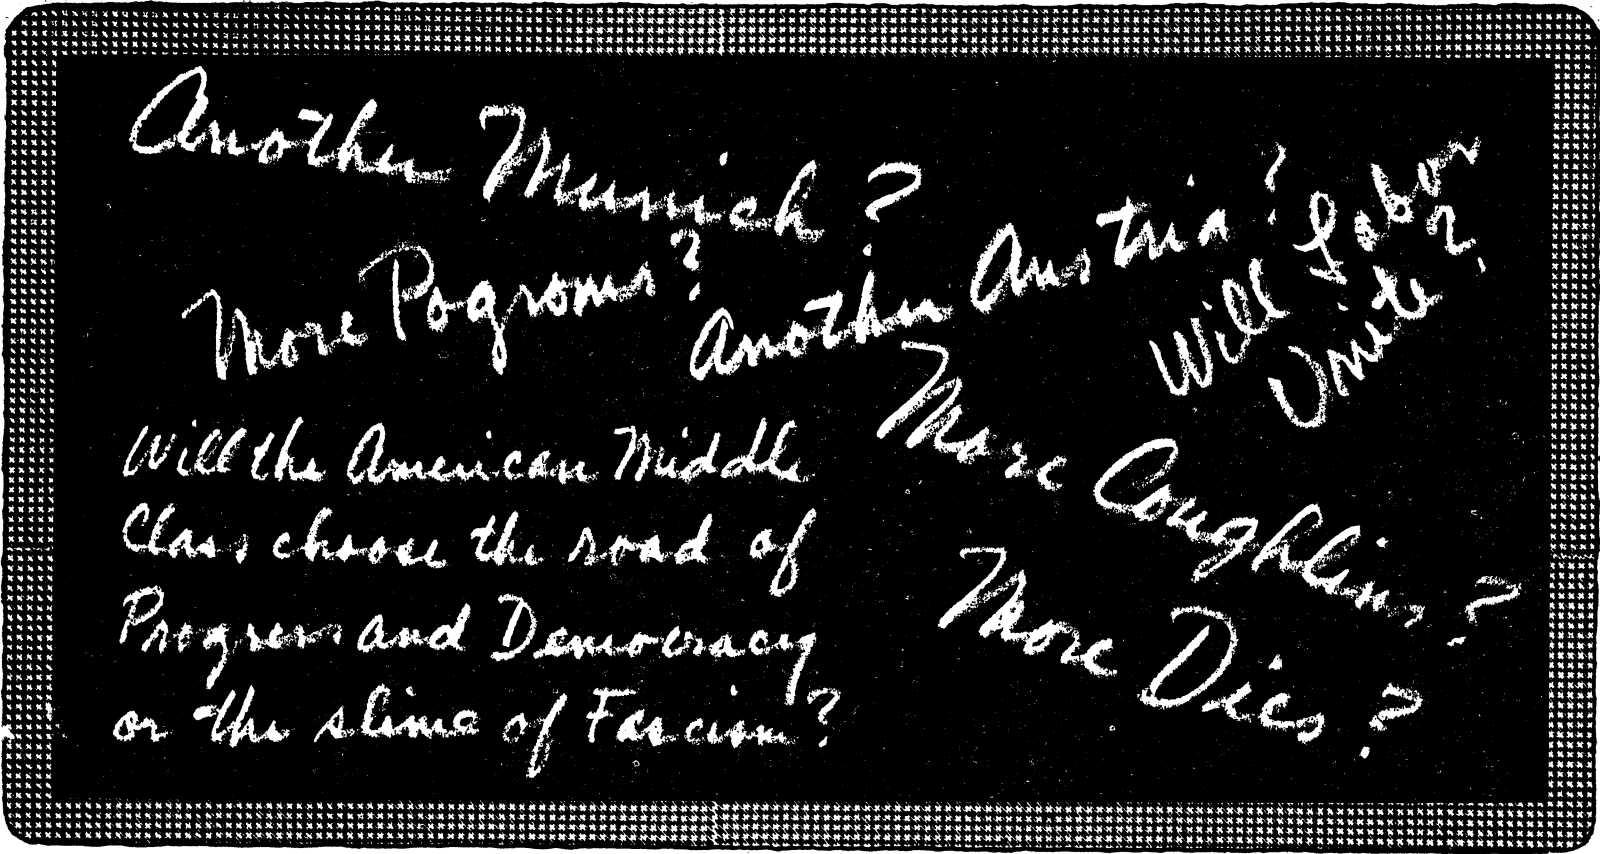 Another Munich?
More Pogroms?
Another Austria?
Will Labor
Unite?
More Coughlins?
More Dies?
Will the American Middle
Class choose the road of
Progress and Democracy
or the slime of Fascism?